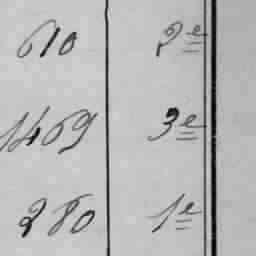 610 2e
1469 3e
280 1e